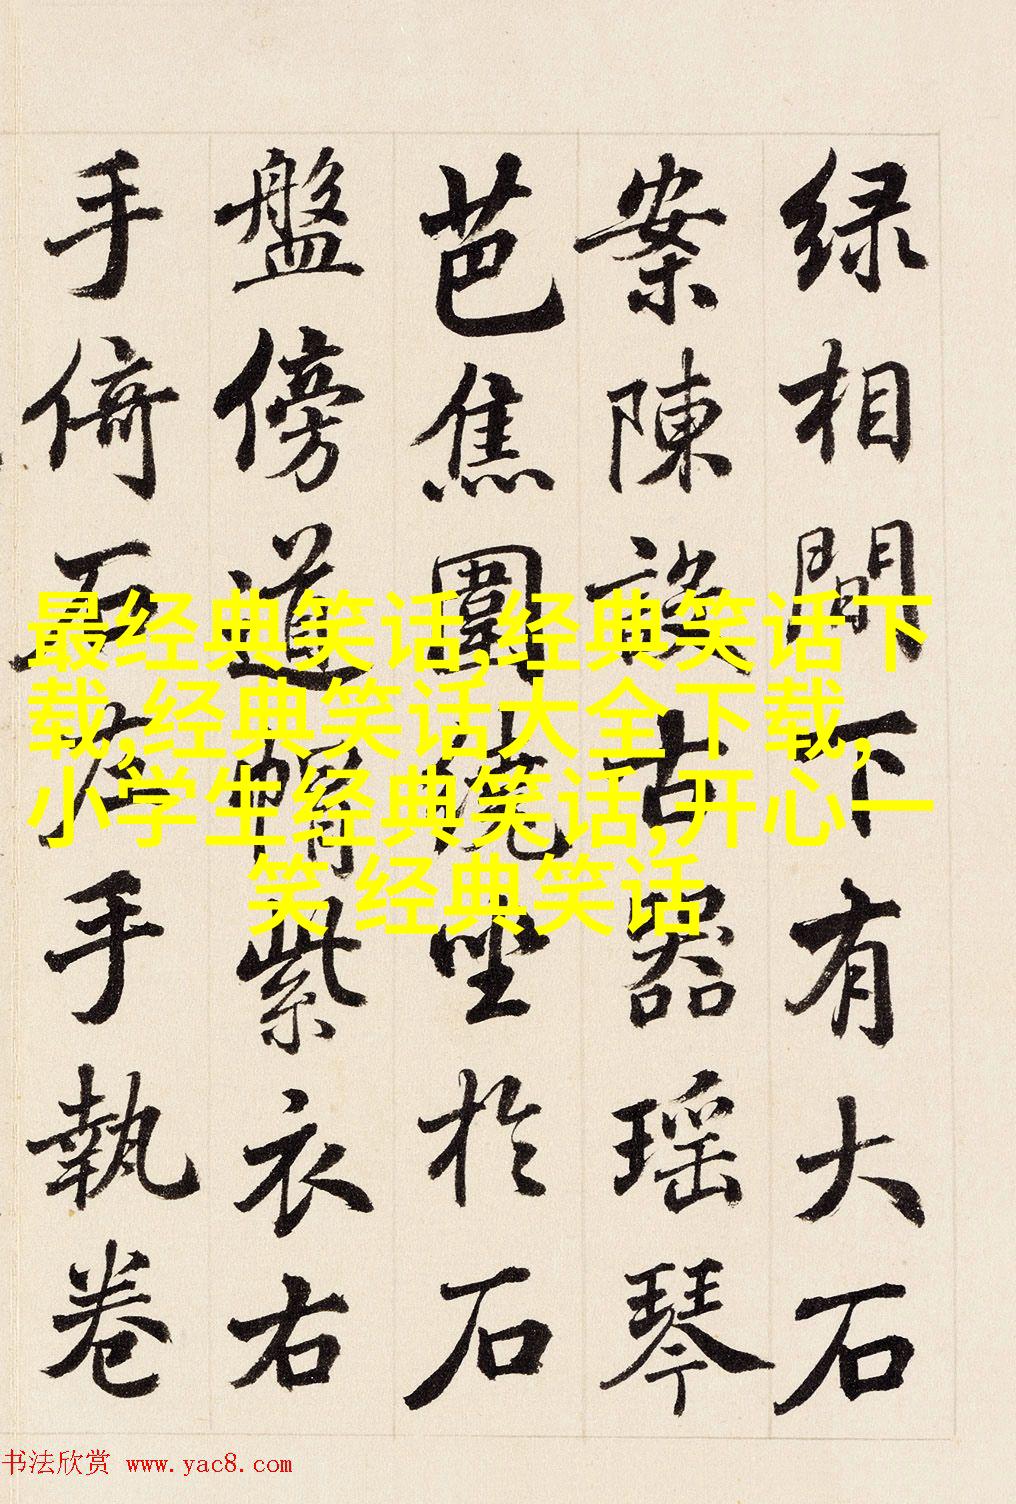 绿相間下有大石
案陳設古器瑶琴
芭焦圍繞坐於石
盤傍道帽紫衣右
手倚石左手執卷
最经典笑话,经典笑话下
载,经典笑话大全下载,
小学生经典笑话,开心一
笑 经典笑话
书法欣赏 www.yac8.com